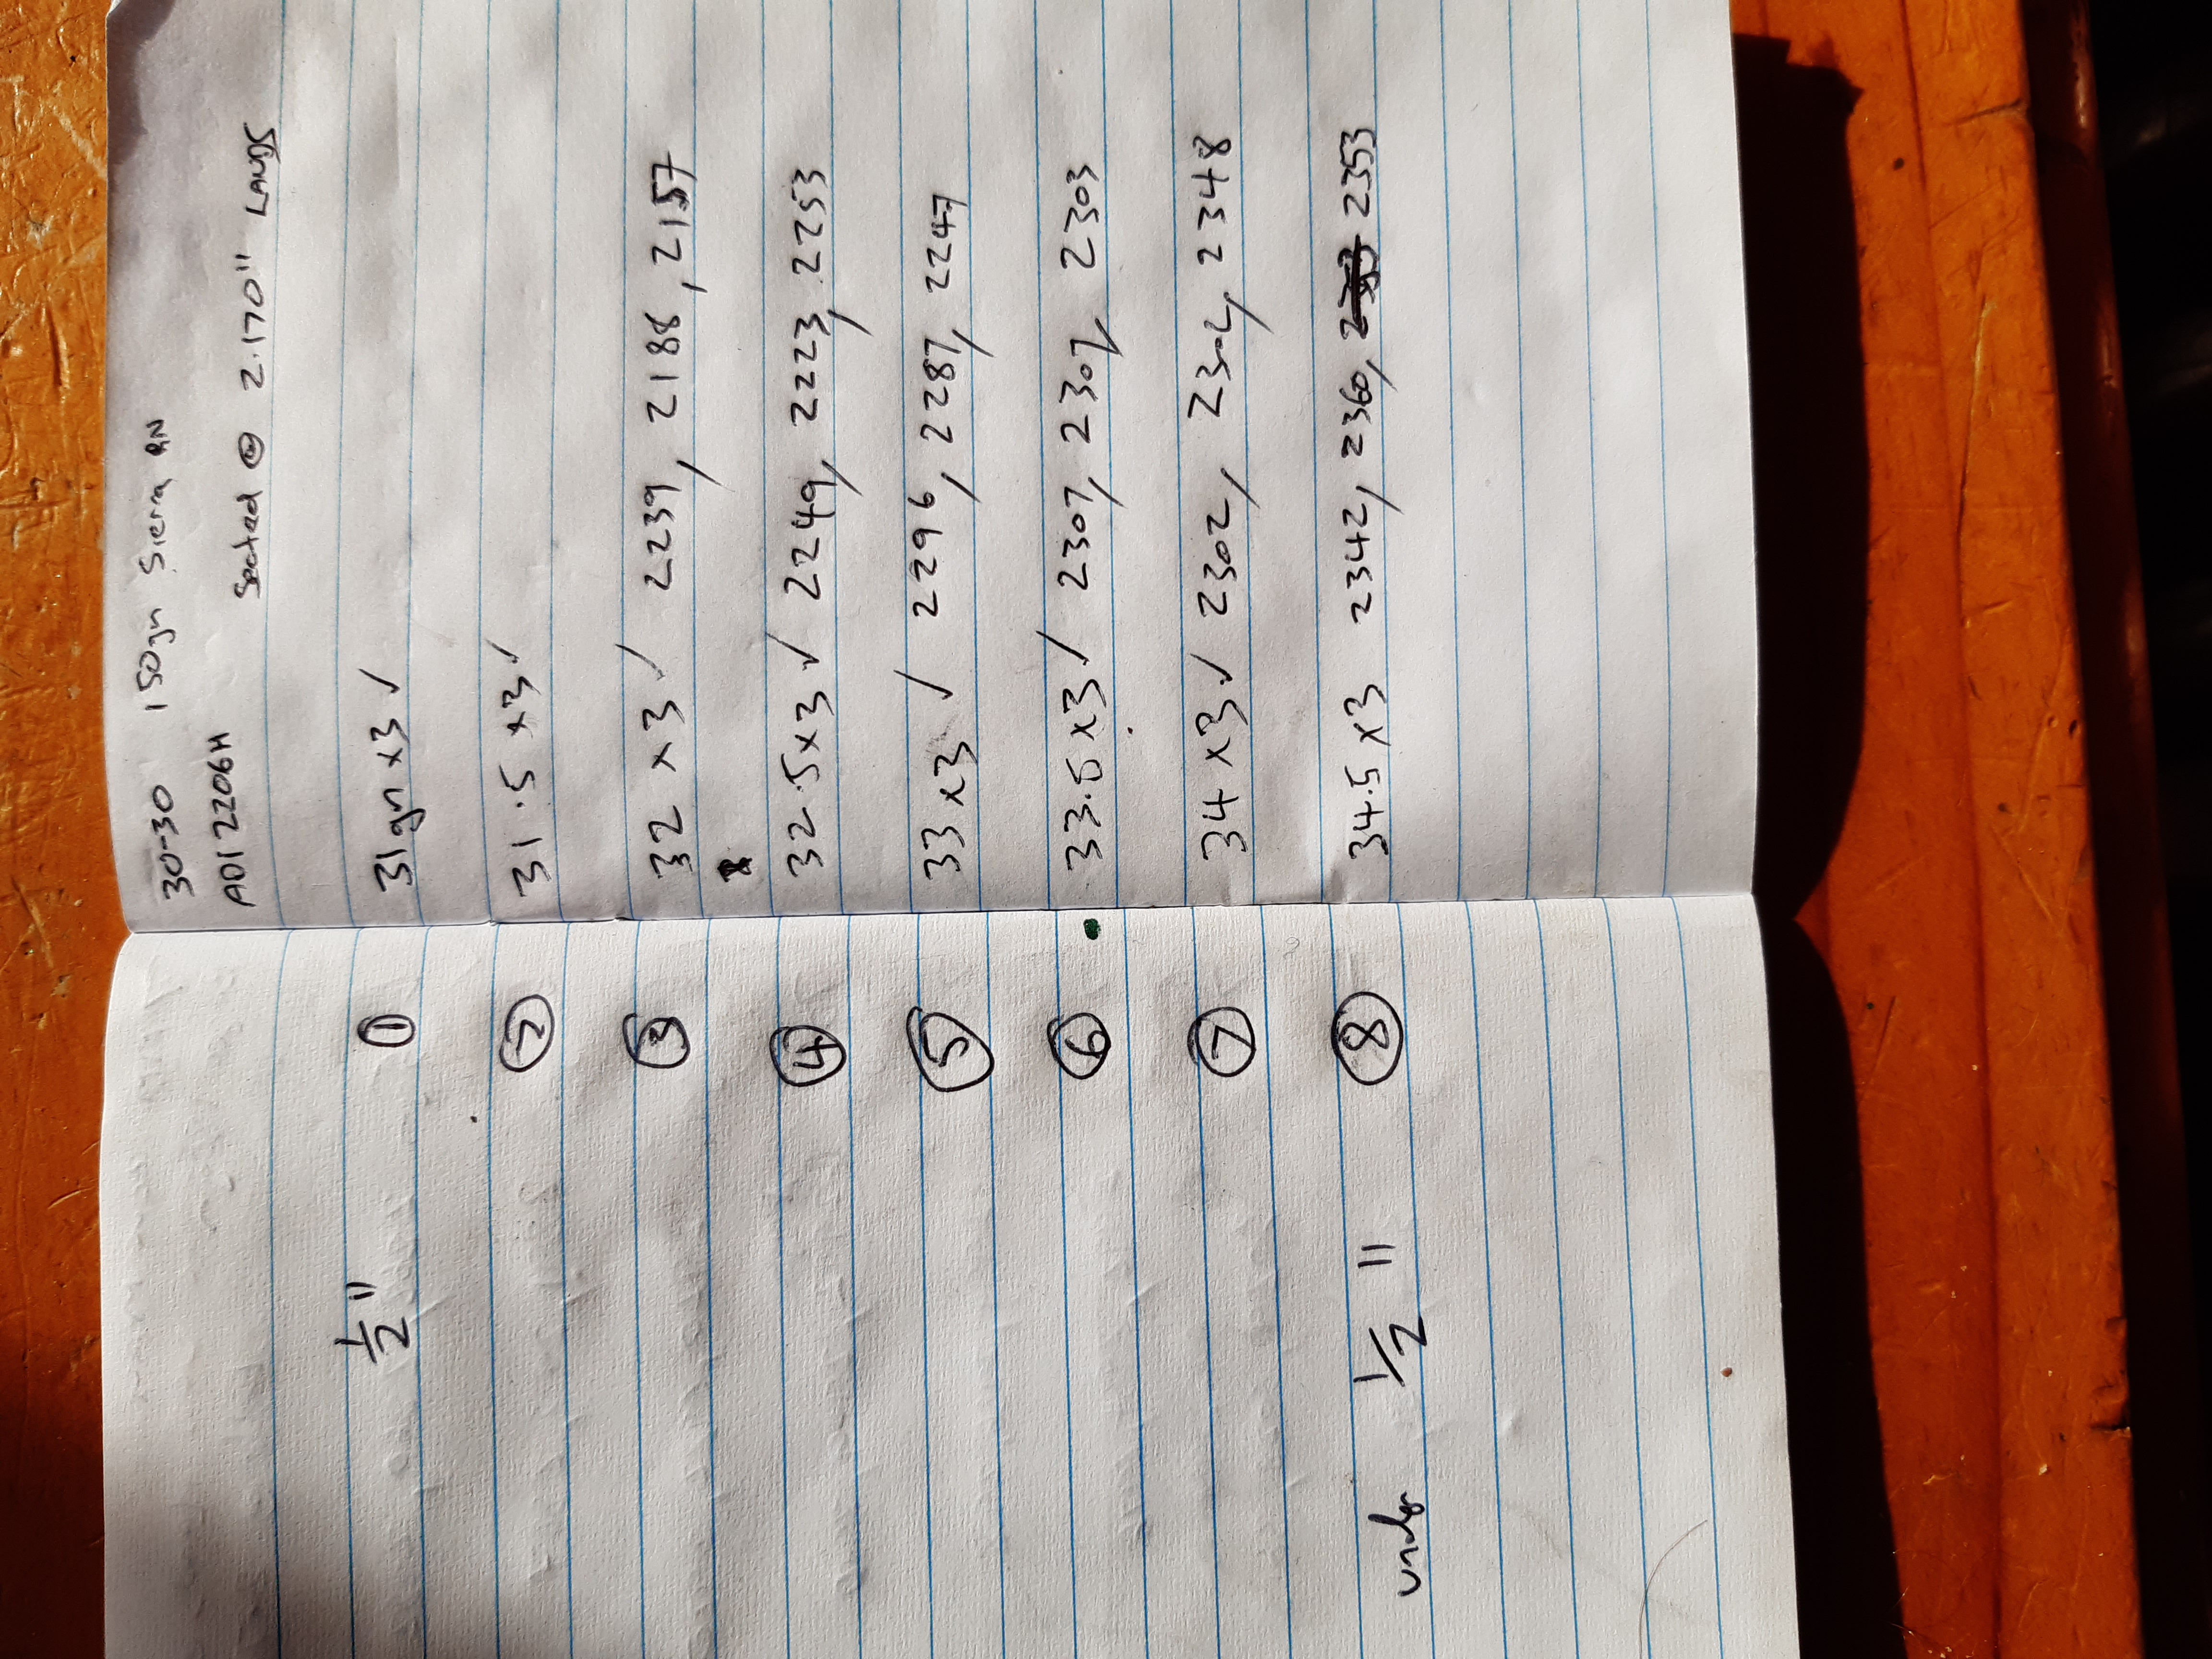 30-30 150gn Sierra RN
ADI 2206H
Seated @ 2.170" LANDS
½" ① 31gn x3 ✓
② 31.5 x3 ✓
③ 32 x3 ✓ 2239, 2188, 2157
④ 32.5 x3 ✓ 2249, 2223, 2253
⑤ 33 x3 ✓ 2296, 2287, 2247
⑥ 33.5 x3 ✓ 2307, 2307, 2303
⑦ 34 x3 ✓ 2302, 2302, 2348
under 1/2" ⑧ 34.5 x3 2342, 2360, 2353